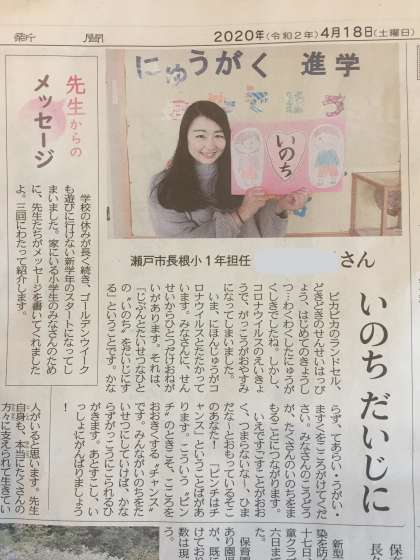 新聞
2020年(令和2年)4月18日(土曜日)
にゅうがく 進学
いのち
先生からの
メッセージ
学校の休みが長く続き、ゴールデンウイーク
も遊びに行けない新学年のスタートになってし
まいました。家にいる小学生のみなさんのため
に、先生たちがメッセージを書いてくれました
よ。三回にわたって紹介します。
瀬戸市長根小1年担任
さん
いのち だいじに
ピカピカのランドセル、
どきどきのせんせいはっぴ
ょう、はじめてのきょうし
つ…わくわくしたにゅうが
くしきでしたね。しかし、
コロナウイルスのえいきょ
うで、がっこうがおやすみ
になってしまいました。
いま、にほんじゅうがコ
ロナウイルスとたたかって
います。みなさんに、せん
せいからひとつだけおねが
いがあります。それは、
「じぶんとたいせつなひと
の〝いのち〟をだいじにす
る」ということです。かな
らず、てあらい・うがい・
ますくをこころがけてくだ
さい。みなさんのこうどう
が、たくさんのいのちをま
もることにつながります。
いえですごすことがおお
く、つまらないな〜、ひま
だな〜とおもっているそこ
のあなた!「ピンチはチ
ャンス」ということばがあ
ります。こういう〝ピン
チ〟のときこそ、こころを
おおきくする〝チャンス〟
です。みんながいのちをた
いせつにしていけば、かな
らずがっこうにこられるひ
がきます。あとすこし、い
っしょにがんばりましょう
!
人がいると思います。先生
自身も、本当にたくさんの
方々に支えられて生きてい